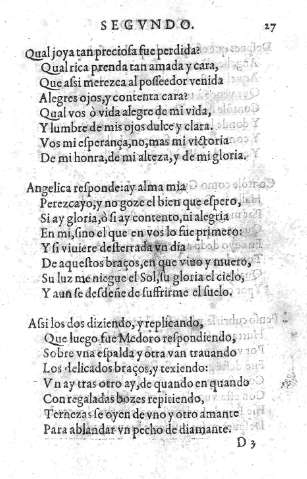 SEGVNDO. 27
Qual joya tan preciosa fue perdida?
Qual rica prenda tan amada y cara,
Que assi merezca al posseedor venida
Alegres ojos, y contenta cara?
Qual vos ò vida alegre de mi vida,
Y lumbre de mis ojos dulce y clara.
Vos mi esperança, no, mas mi victoria
De mi honra, de mi alteza, y de mi gloria.
Angelica responde: ay alma mia
Perezca yo, y no goze el bien que espero,
Si ay gloria, ò si ay contento, ni alegria
En mi, sino el que en vos lo fue primero:
Y si viuiere desterrada vn dia
De aquestos braços, en que viuo y muero,
Su luz me niegue el Sol, su gloria el cielo,
Y aun se desdeñe de suffrirme el suelo.
Assi los dos diziendo, y replicando,
Que luego fue Medoro respondiendo,
Sobre vna espalda y otra van trauando
Los delicados braços, y texiendo:
Vn ay tras otro ay, de quando en quando
Con regaladas bozes repitiendo,
Ternezas se oyen de vno y otro amante
Para ablandar vn pecho de diamante.
D 3